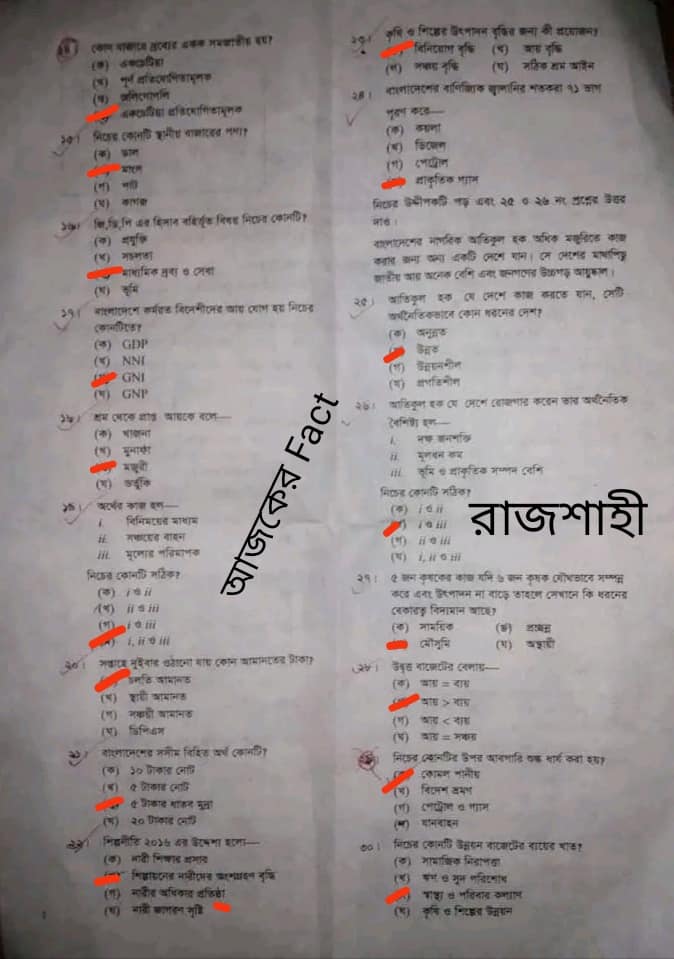 ১৪। কোন বাজারে দ্রব্যের একক সমজাতীয় হয়?
(ক) একচেটিয়া
(খ) পূর্ণ প্রতিযোগিতামূলক
(গ) অলিগোপলি
একচেটিয়া প্রতিযোগিতামূলক
১৫। নিচের কোনটি স্থানীয় বাজারের পণ্য?
(ক) ডাল
মাংস
(গ) পাট
(ঘ) কাগজ
১৬। জি.ডি.পি এর হিসাব বহির্ভূত বিষয় নিচের কোনটি?
(ক) প্রযুক্তি
(খ) সচলতা
মাধ্যমিক দ্রব্য ও সেবা
(ঘ) ভূমি
১৭। বাংলাদেশে কর্মরত বিদেশীদের আয় যোগ হয় নিচের
কোনটিতে?
(ক) GDP
(খ) NNI
GNI
(ঘ) GNP
১৮। শ্রম থেকে প্রাপ্ত আয়কে বলে—
(ক) খাজনা
(খ) মুনাফা
মজুরী
(ঘ) ভর্তুকি
১৯। অর্থের কাজ হল—
i. বিনিময়ের মাধ্যম
ii. সঞ্চয়ের বাহন
iii. মূল্যের পরিমাপক
নিচের কোনটি সঠিক?
(ক) i ও ii
(খ) ii ও iii
(গ) i ও iii
i, ii ও iii
২০। সপ্তাহে দুইবার ওঠানো যায় কোন আমানতের টাকা?
চলতি আমানত
(খ) স্থায়ী আমানত
(গ) সঞ্চয়ী আমানত
(ঘ) ডিপিএস
২১। বাংলাদেশের সসীম বিহিত অর্থ কোনটি?
(ক) ১০ টাকার নোট
(খ) ৫ টাকার নোট
৫ টাকার ধাতব মুদ্রা
(ঘ) ২০ টাকার নোট
২২। শিল্পনীতি ২০১৬ এর উদ্দেশ্য হলো—
(ক) নারী শিক্ষার প্রসার
শিল্পায়নের নারীদের অংশগ্রহণ বৃদ্ধি
(গ) নারীর অধিকার প্রতিষ্ঠা
(ঘ) নারী জাগরণ সৃষ্টি
২৩। কৃষি ও শিল্পের উৎপাদন বৃদ্ধির জন্য কী প্রয়োজন?
বিনিয়োগ বৃদ্ধি (খ) আয় বৃদ্ধি
(গ) সঞ্চয় বৃদ্ধি (ঘ) সঠিক শ্রম আইন
২৪। বাংলাদেশের বাণিজ্যিক জ্বালানির শতকরা ৭১ ভাগ
পূরণ করে—
(ক) কয়লা
(খ) ডিজেল
(গ) পেট্রোল
প্রাকৃতিক গ্যাস
নিচের উদ্দীপকটি পড় এবং ২৫ ও ২৬ নং প্রশ্নের উত্তর
দাও।
বাংলাদেশের নাগরিক আতিকুল হক অধিক মজুরিতে কাজ
করার জন্য অন্য একটি দেশে যান। সে দেশের মাথাপিছু
জাতীয় আয় অনেক বেশি এবং জনগণের উচ্চগড় আয়ুষ্কাল।
২৫। আতিকুল হক যে দেশে কাজ করতে যান, সেটি
অর্থনৈতিকভাবে কোন ধরনের দেশ?
(ক) অনুন্নত
উন্নত
(গ) উন্নয়নশীল
(ঘ) প্রগতিশীল
২৬। আতিকুল হক যে দেশে রোজগার করেন তার অর্থনৈতিক
বৈশিষ্ট্য হল—
i. দক্ষ জনশক্তি
ii. মূলধন কম
iii. ভূমি ও প্রাকৃতিক সম্পদ বেশি
নিচের কোনটি সঠিক?
(ক) i ও ii
i ও iii
(গ) ii ও iii
(ঘ) i, ii ও iii
২৭। ৫ জন কৃষকের কাজ যদি ৬ জন কৃষক যৌথভাবে সম্পন্ন
করে এবং উৎপাদন না বাড়ে তাহলে সেখানে কি ধরনের
বেকারত্ব বিদ্যমান আছে?
(ক) সাময়িক প্রচ্ছন্ন
মৌসুমি (ঘ) অস্থায়ী
২৮। উদ্বৃত্ত বাজেটের বেলায়—
(ক) আয় = ব্যয়
আয় > ব্যয়
(গ) আয় < ব্যয়
(ঘ) আয় = সঞ্চয়
নিচের কোনটির উপর আবগারি শুল্ক ধার্য করা হয়?
কোমল পানীয়
(খ) বিদেশ ভ্রমণ
(গ) পেট্রোল ও গ্যাস
যানবাহন
৩০। নিচের কোনটি উন্নয়ন বাজেটের ব্যয়ের খাত?
(ক) সামাজিক নিরাপত্তা
(খ) ঋণ ও সুদ পরিশোধ
স্বাস্থ্য ও পরিবার কল্যাণ
(ঘ) কৃষি ও শিল্পের উন্নয়ন
আজকের Fact
রাজশাহী